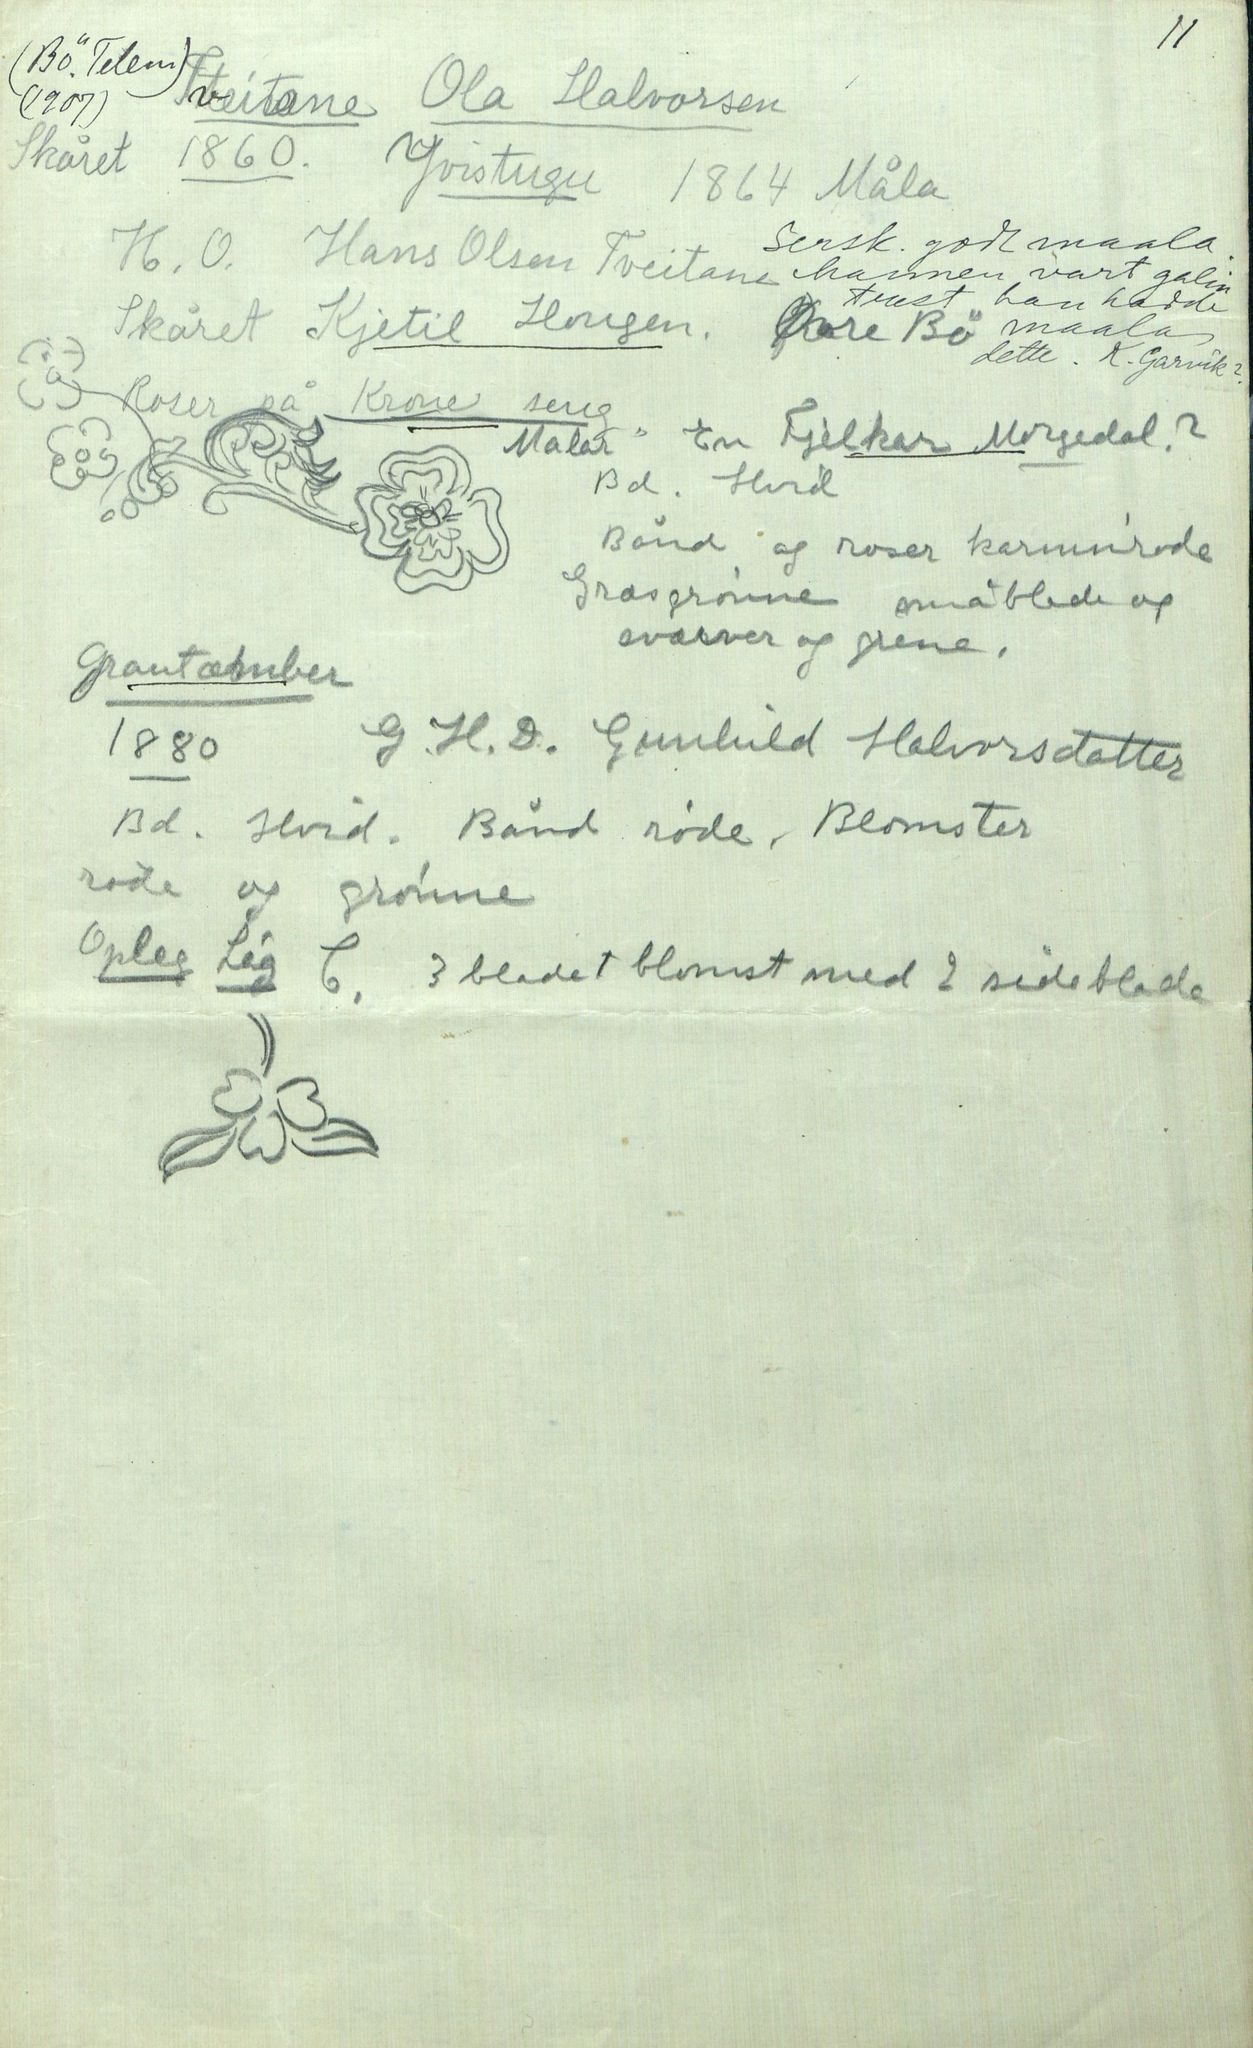 11
(Bö. Telem)
(1907)
Tveitane Ola Halvorsen
Skåret 1860. Yvistugu 1864 Måla
H. O. Hans Olsen Tveitane
Sersk. godt maala.
mannen vart galin
han hadde
maala
dette. K. Garvik?
Skåret Kjetil Hougen. Øvre Bö
Roser på Krone seng
Malar En Fjelkar Morgedal.?
Bd. Hvid
Bånd og roser karminrøde
Græsgrønne småblade og
svarver og grene.
Grautæmber
1880 G. H. D. Gunhild Halvorsdatter
Bd. Hvid. Bånd røde. Blomster
røde og grønne
Opleg Lég C. 3 bladet blomst med 2 sideblade